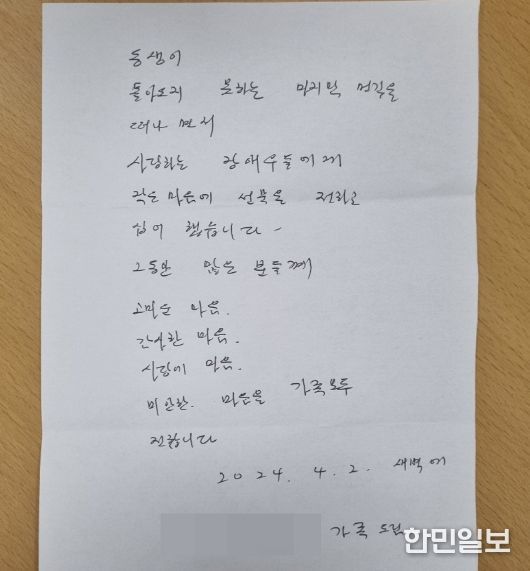 동생이
돌아오지 못하는 마지막 여행을
떠나면서
사랑하는 장애우들에게
작은 마음에 선물을 전하고
싶어 했습니다-
그동안 많은 분들께
고마운 마음.
감사한 마음.
사랑에 마음.
미안한. 마음을 가족모두
전합니다
2024. 4. 2. 새벽에
가족 드림
한민일보